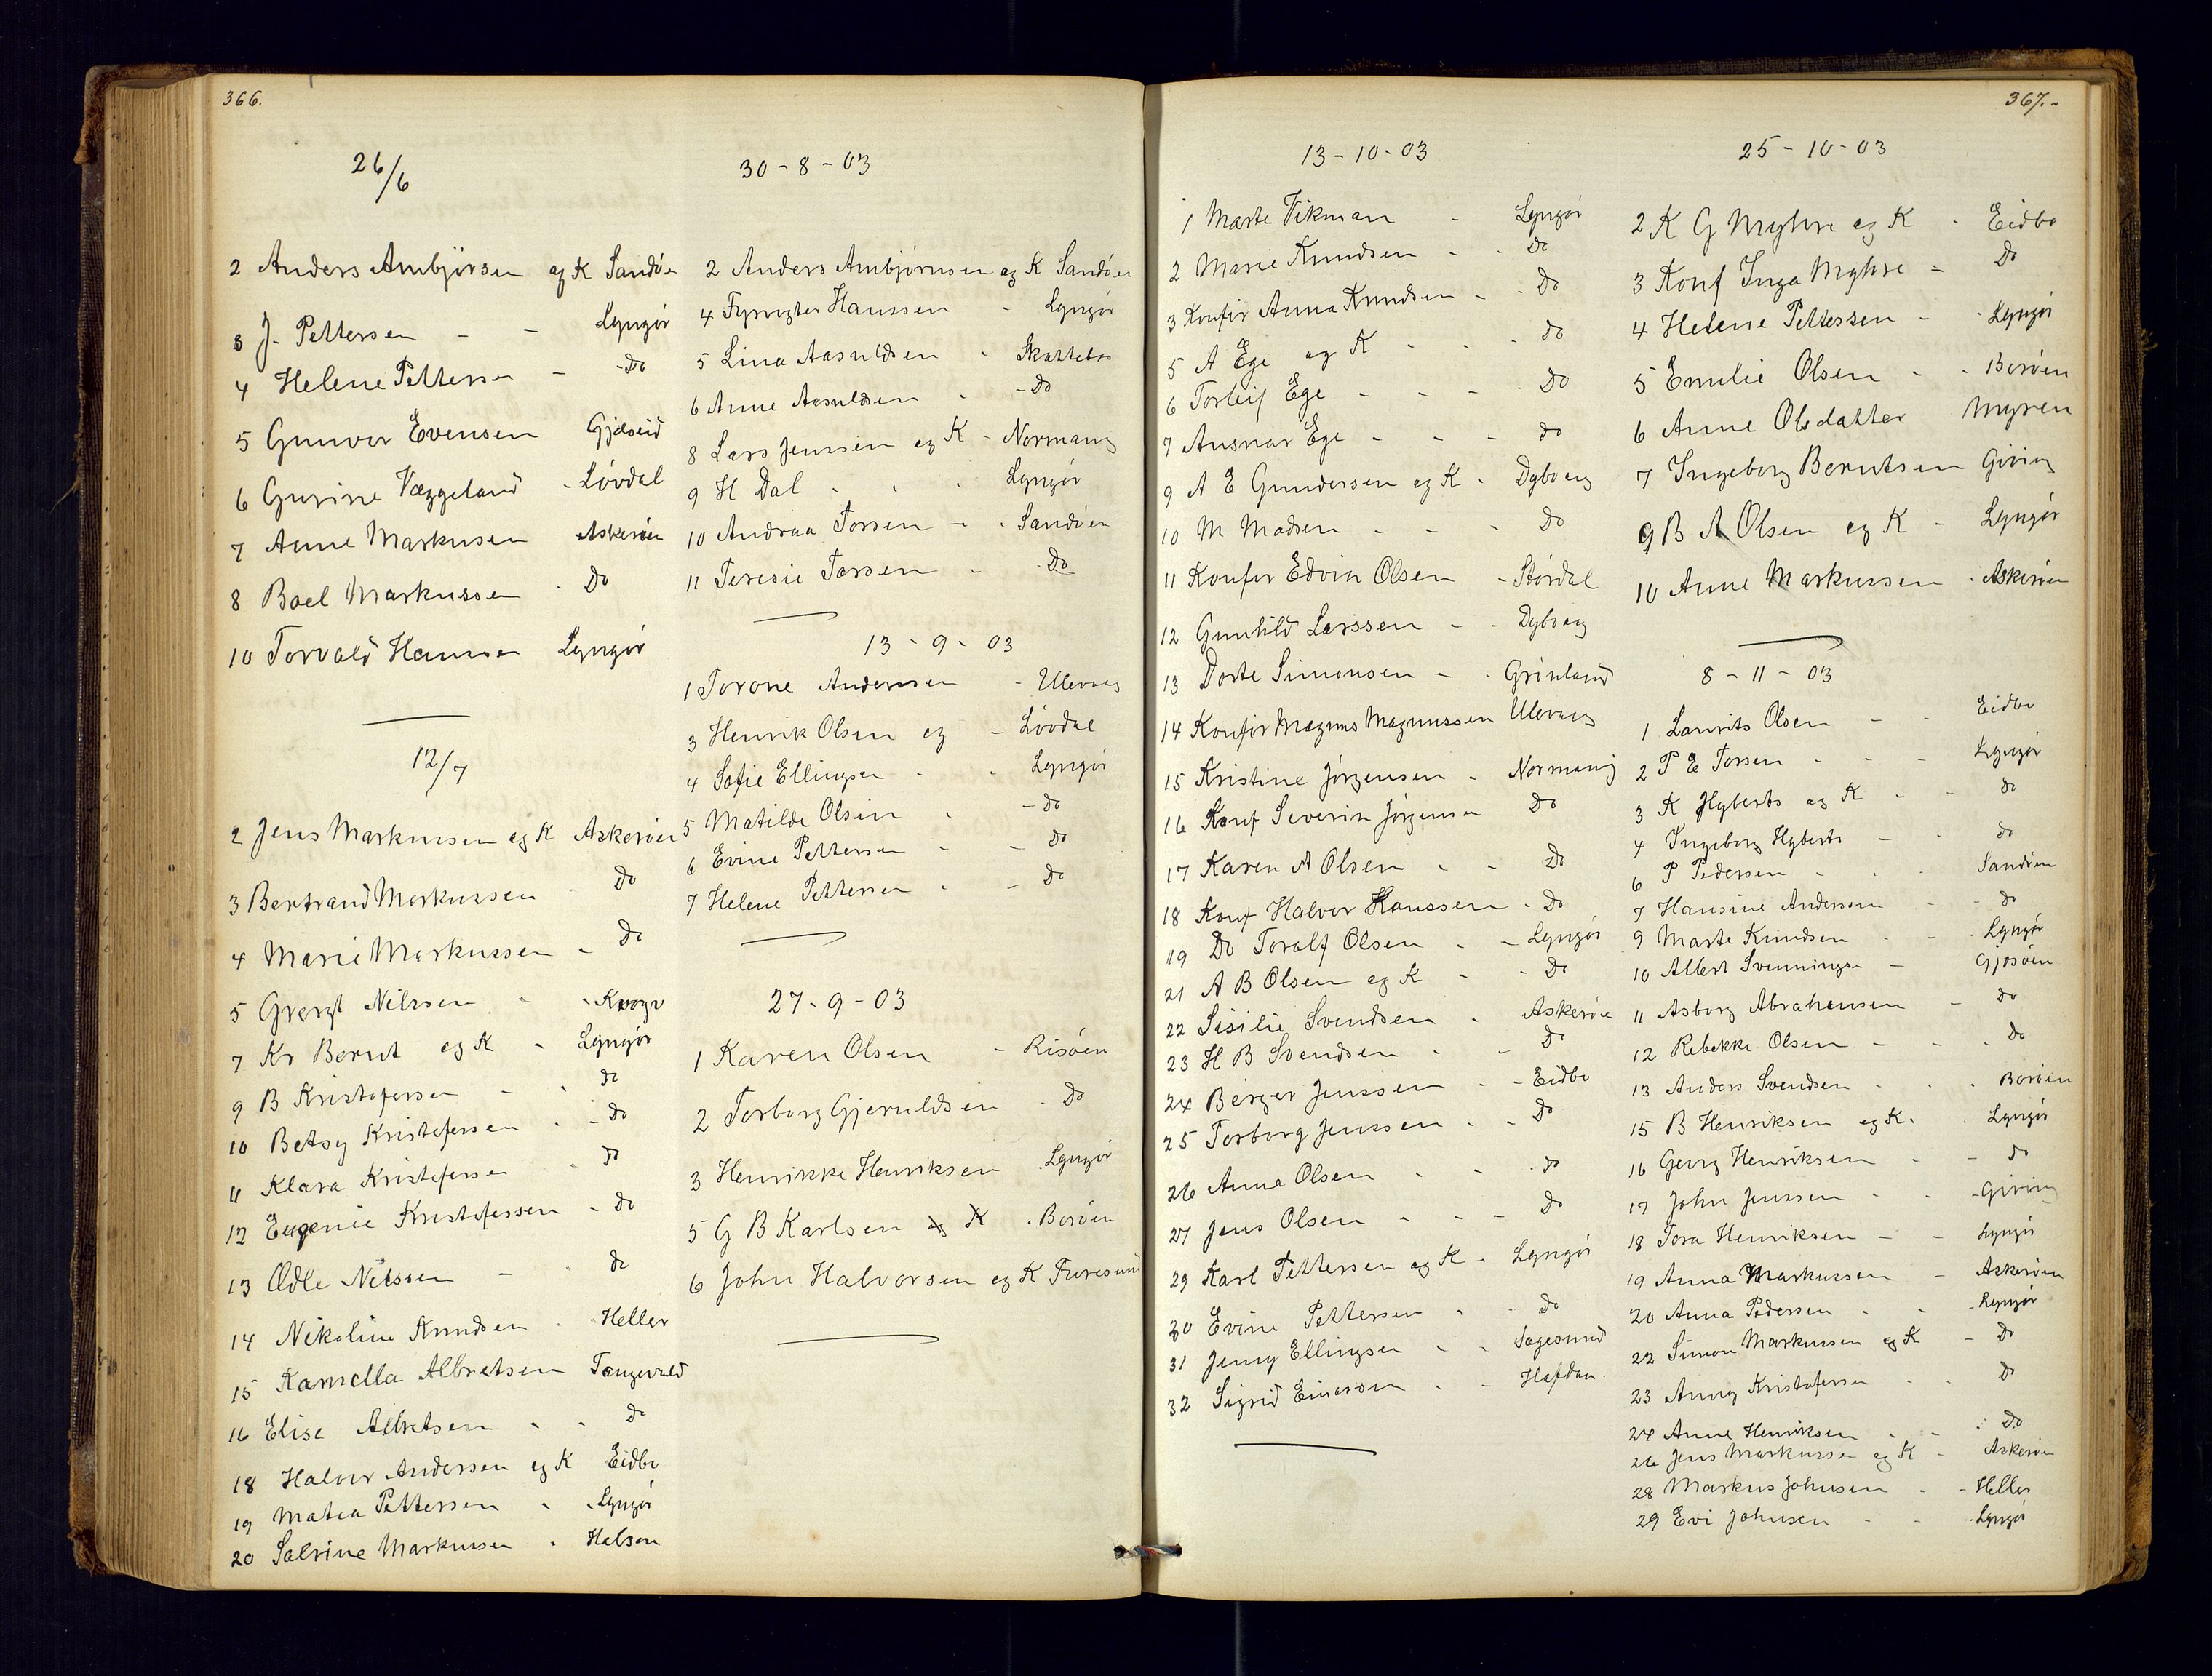 366.
26/6
2 Anders Ambjörsen og K Sandøen
3 J. Pettersen - - Lyngør
4 Helene Pettersen - - Do
5 Gunvor Evensen Gjæseid
6 Gurine Væggeland - Løvdal
7 Anne Markusen Askerøen
8 Boel Markussen - Do
10 Torvald Hanssen Lyngør
12/7
2 Jens Markussen og K Askerøen
3 Bertrand Markussen - Do
4 Marie Markussen - Do
5 Nilssen - -
7 Kr Bernt og K - Lyngør
9 B Kristofersen - - do
10 Betsy Kristofersen - - Do
11 Klara Kristofersen - do
12 Eugenie Kristofersen - Do
13 Ædle Nilssen - - do
14 Nikoline Knudsen - Heller
15 Kamella Albretsen Tangevald
16 Elise Albretsen - - do
18 Halvor Andersen og K Eidbo
19 Matea Pettersen - - Lyngør
20 Salrine Markussen - Halsen
30-8-03
2 Anders Ambjørnsen og K Sandøen
4 Fyrvogter Hanssen - Lyngør
5 Lina Aasuldsen - Skattebo
6 Anne Aasuldsen - - Do
8 Lars Jenssen og K - Normanvig
9 H Dal - - - Lyngør
10 Andraa Torsen - - Sandøen
11 Teresie Torsen - Do
13-9-03
1 Torone Andersen - Ulevaag
3 Henrik Olsen og - Løvdal
4 Sofie Ellingsen - - Lyngør
5 Matilde Olsen - - do
6 Evine Pettersen - - Do
7 Helene Pettersen - - Do
27-9-03
1 Karen Olsen - Risøen
2 Torborg Gjeruldsen - Do
3 Henrikke Henriksen - Lyngør
5 G B Karlsen og K - Borøen
6 John Halvorsen og K Furesund
367.-
13-10-03
1 Marte Vikman - Lyngør
2 Marie Knudsen - - Do
3 Konfir Anna Knudsen - - Do
5 A Ege og K - - - Do
6 Torleif Ege - - - Do
7 Ausnar Ege - - - do
9 A E Gundersen og K - Dybvaag
10 M Madsen - - - Do
11 Konfir Edvin Olsen - Stördal
12 Gunhild Larssen - - Dybvaag
13 Dorte Simonsen - - Grönland
14 Konfir Magnus Magnussen Ulevaag
15 Kristine Jørgensen - Normanvig
16 Konf Severin Jørgensen Do
17 Karen A Olsen - - Do
18 Konf Halvor Hanssen - Do
19 Do Toralf Olsen - - Lyngør
21 A B Olsen og K - - Do
22 Sisilie Svendsen - Askerøen
23 H B Svendsen - - Do
24 Berger Jenssen - - Eidbo
25 Torborg Jenssen - - Do
26 Anna Olsen - - - do
27 Jens Olsen - - - Do
29 Karl Pettersen og K - Lyngør
30 Evine Pettersen - - Do
31 Jenny Ellingsen - - Sagesund
32 Sigrid Einarsen - - Hafdan.
25-10-03
2 K G Myhre og K - Eidbo
3 Konf Inga Myhre - Do
4 Helene Pettersen - - Lyngør
5 Emilie Olsen - - Borøen
6 Anne Olsdatter Myren
7 Ingeborg Berntsen Giving
9 B A Olsen og K - Lyngør
10 Anne Markussen - Askerøen
8-11-03
1 Laurits Olsen - - Eidbo
2 P E Torsen - - - Lyngør
3 K Hyberts og K - - do
4 Ingeborg Hyberts - - do
6 P Pedersen - - - Sandøen
7 Hansine Anderssen - - do
9 Marte Knudsen - - Lyngør
10 Albert Svenningsen - Gjæsøen
11 Asborg Abrahamsen - Do
12 Rebekke Olsen - - - Do
13 Anders Svendsen - - - Borøen
15 B Henriksen og K. - Lyngør
16 Georg Henriksen - - Do
17 John Jenssen - - - Giving
18 Tora Henriksen - - Lyngør
19 Anna Markussen - Askerøen
20 Anna Pedersen - - - Lyngør
22 Simon Markussen og K - Do
23 Anny Kristofersen - - Do
24 Anne Henriksen - - - Do
26 Jens Markussen og K - Askerøen
28 Markus Johnsen - - Heller
29 Evi Johnsen - - - Lyngør